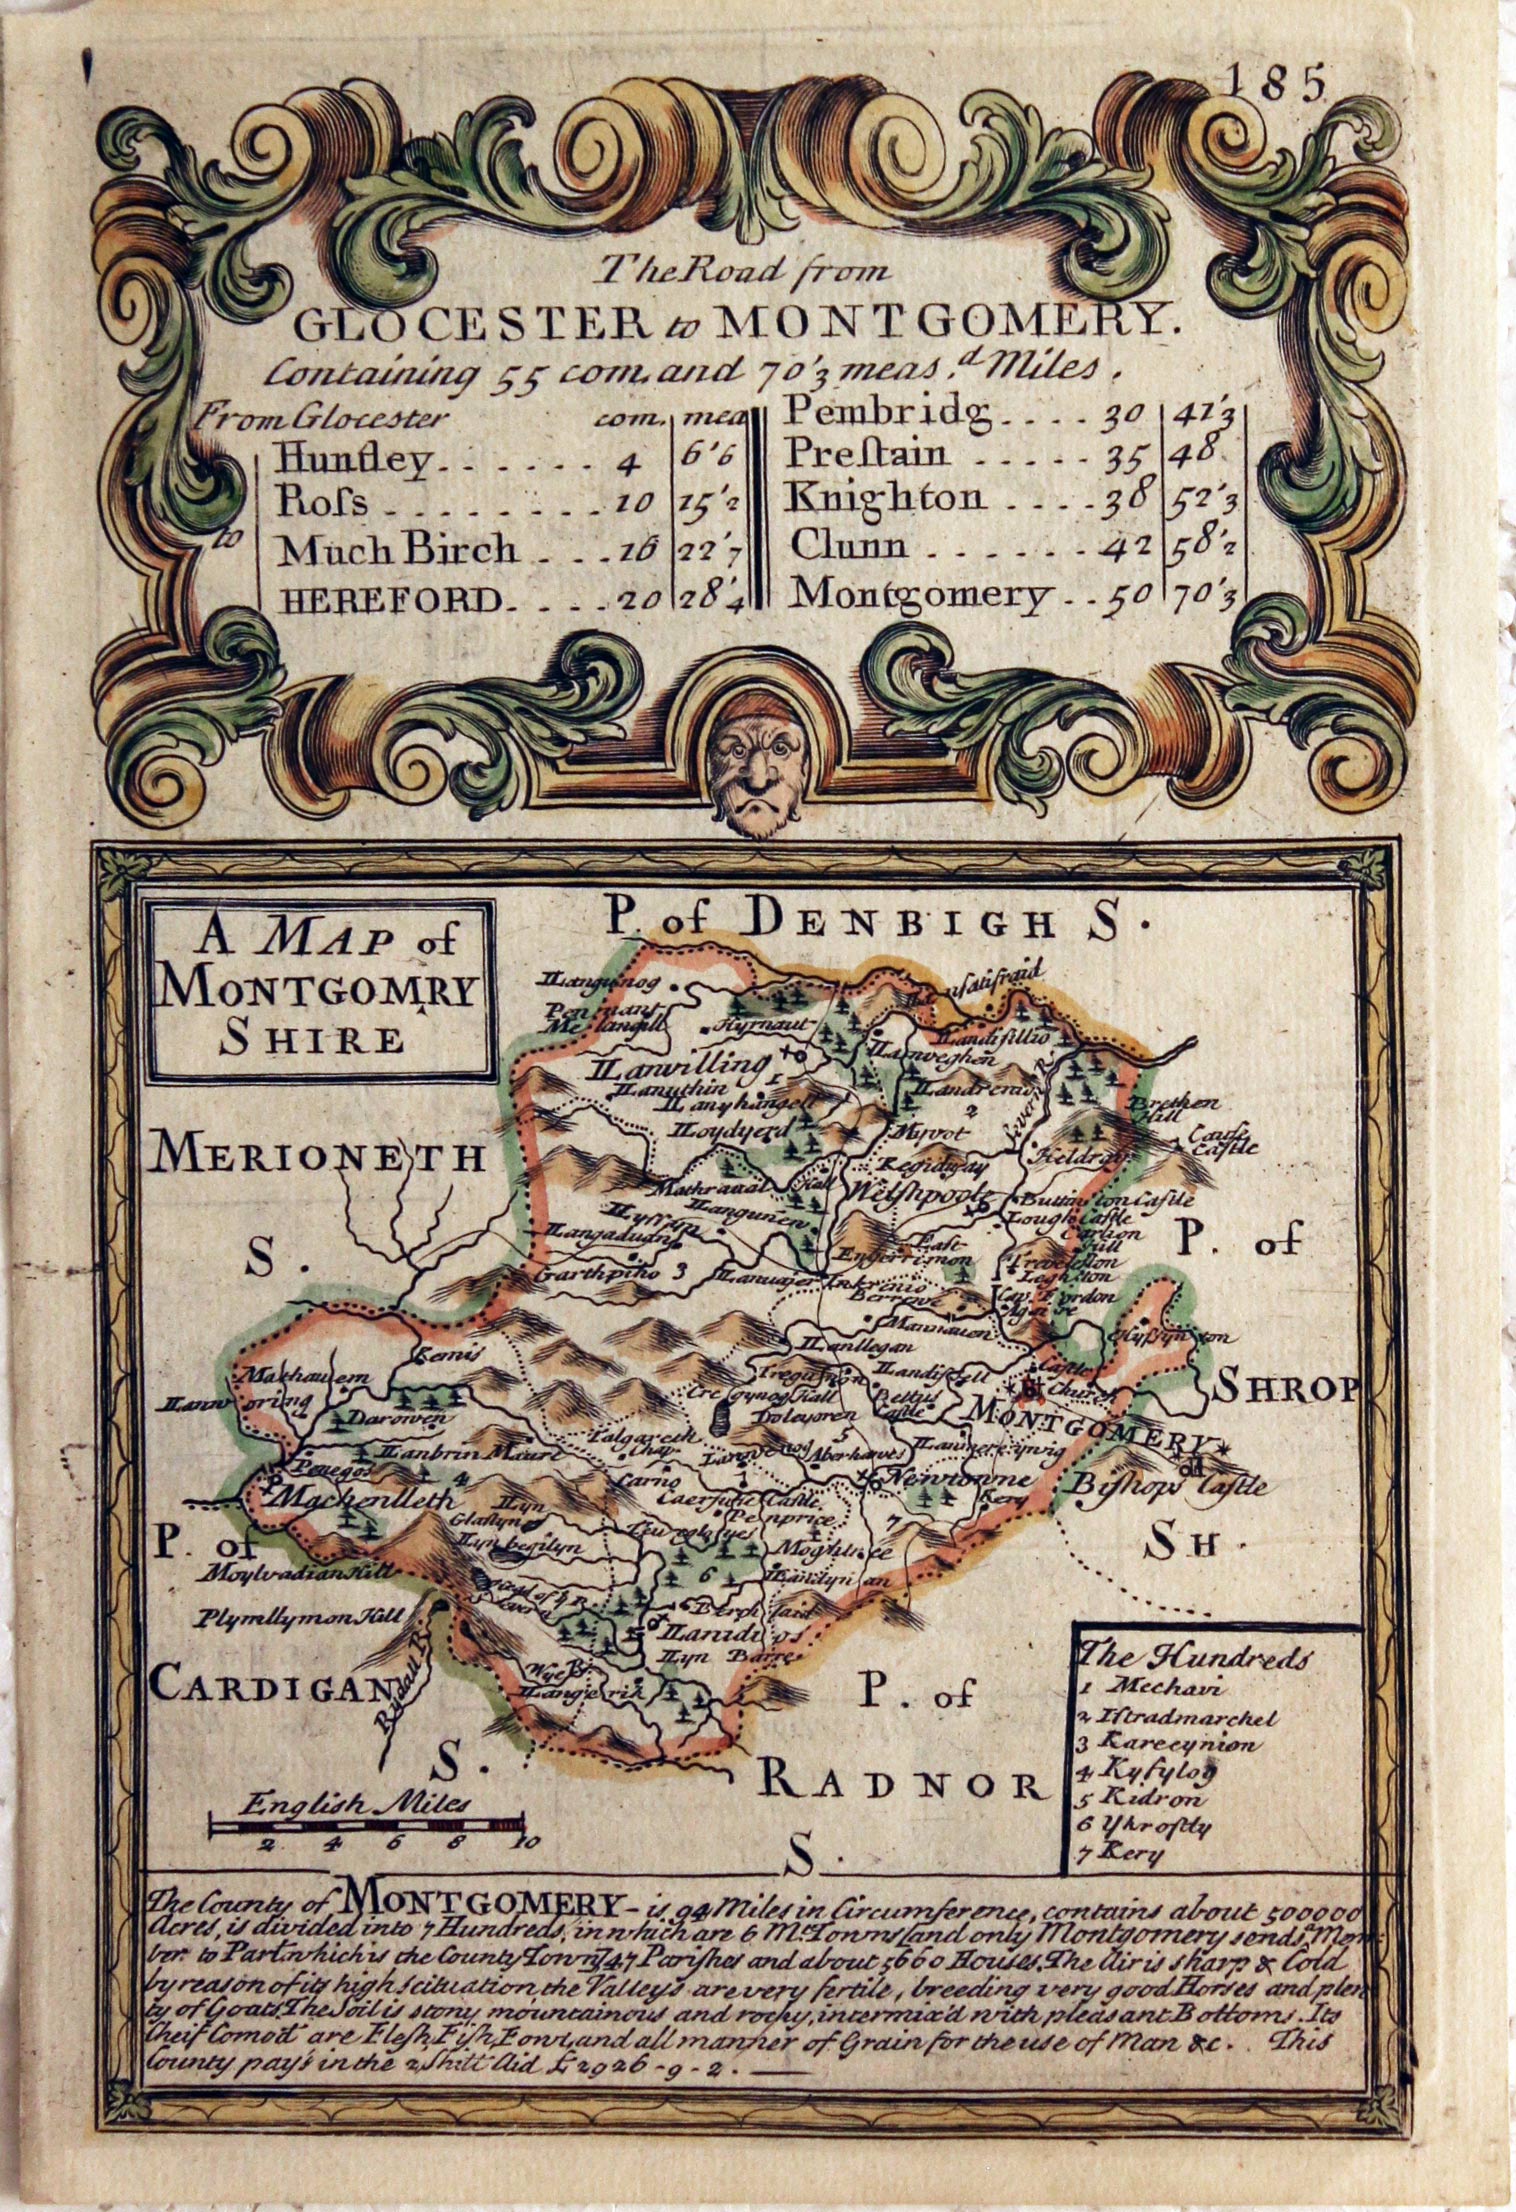 185
The Road from
GLOCESTER to MONTGOMERY.
Containing 55 com. and 70'3 meas.d Miles.
From Glocester com. mea
to
Huntley 4 6'6
Roſs 10 15'2
Much Birch 16 22'7
HEREFORD 20 28'4
Pembridg 30 41'3
Preſtain 35 48
Knighton 38 52'3
Clunn 42 58'2
Montgomery 50 70'3
A MAP of
MONTGOMRY
SHIRE
P. of DENBIGH S.
Llangunog
Pennant
Melangell
Hyrnaut
Llanſatifraid
Llandiſillio
Llanvilling
Llanveghen
Llanuthin
1
Llanyhangell
Llandrenio
2
Severn R.
Brethen
Hill
Lloydyerd
Myvot
Cauſe
Caſtle
MERIONETH
S.
Keldrag
Regidway
Mathraual
Hall
Welſhpoole
Llangunen
Buttington Caſtle
Lough Caſtle
Llyſſyn
Llangaduans
Carlion
Hill
P. of
SHROP
SH.
Eaſt
Engerrimon
Treveleſton
Leghton
Garthpiho
3
Llanuajer
Inkrenio
Berrowe
Mannauon
Llanllegan
Kemis
Mathauem
Llanworing
Darowen
Tregunon
Llandiſſell
Caſtle
Church
Cregynog Hall
Bettus
Caſtle
Doleyoren
MONTGOMERY
Llanbrin Maire
Talgareth
Chap.
5
Aberhaves
Llanmerewig
Penegos
4
Machenlleth
Carno
Newtowne
Kery
Biſhops Caſtle
Caerſuſe Caſtle
Penprice
7
Llyn
Glaſlyn
Llyn begilyn
P. of
CARDIGAN
S.
Moylvadian Hill
Moghtree
6
Llandynan
Head of ye R.
Severn
Plymllymon Hill
Llanidlos
Llyn Barre
Wye R.
Llangerik
Rydall R.
P. of
RADNOR
S.
The Hundreds
1 Mechavi
2 Iſtradmarchel
3 Kareeynion
4 Kyfylog
5 Kidron
6 Yhroſtly
7 Kery
English Miles
2 4 6 8 10
The County of MONTGOMERY - is 94 Miles in Circumference, contains about 500000
Acres, is divided into 7 Hundreds, in which are 6 Mt. Towns (and only Montgomery sends a Mem=
ber to Parl.t which is the County Town) 47 Pariſhes and about 5660 Houses. The Air is sharp & Cold
by reason of its high scituation, the Valleys are very fertile, breeding very good Horses and plen
ty of Goats. The Soil is stony mountainous and rocky, intermix'd with pleasant Bottoms. Its
Cheif Comod.s are Fleſh, Fiſh, Fowl, and all manner of Grain for the use of Man &c. This
County pay's in the 2 Shill.g Aid £2926-9-2.